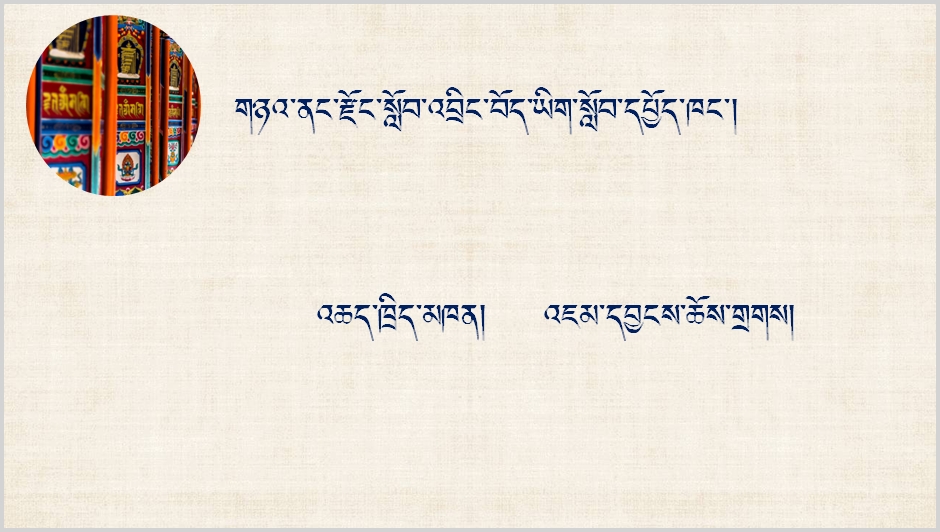 གཉའ་ནང་རྫོང་སློབ་འབྲིང་བོད་ཡིག་སློབ་དཔྱོད་ཁང་།
འཆད་ཁྲིད་མཁན། འཇམ་དབྱངས་ཆོས་གྲགས།